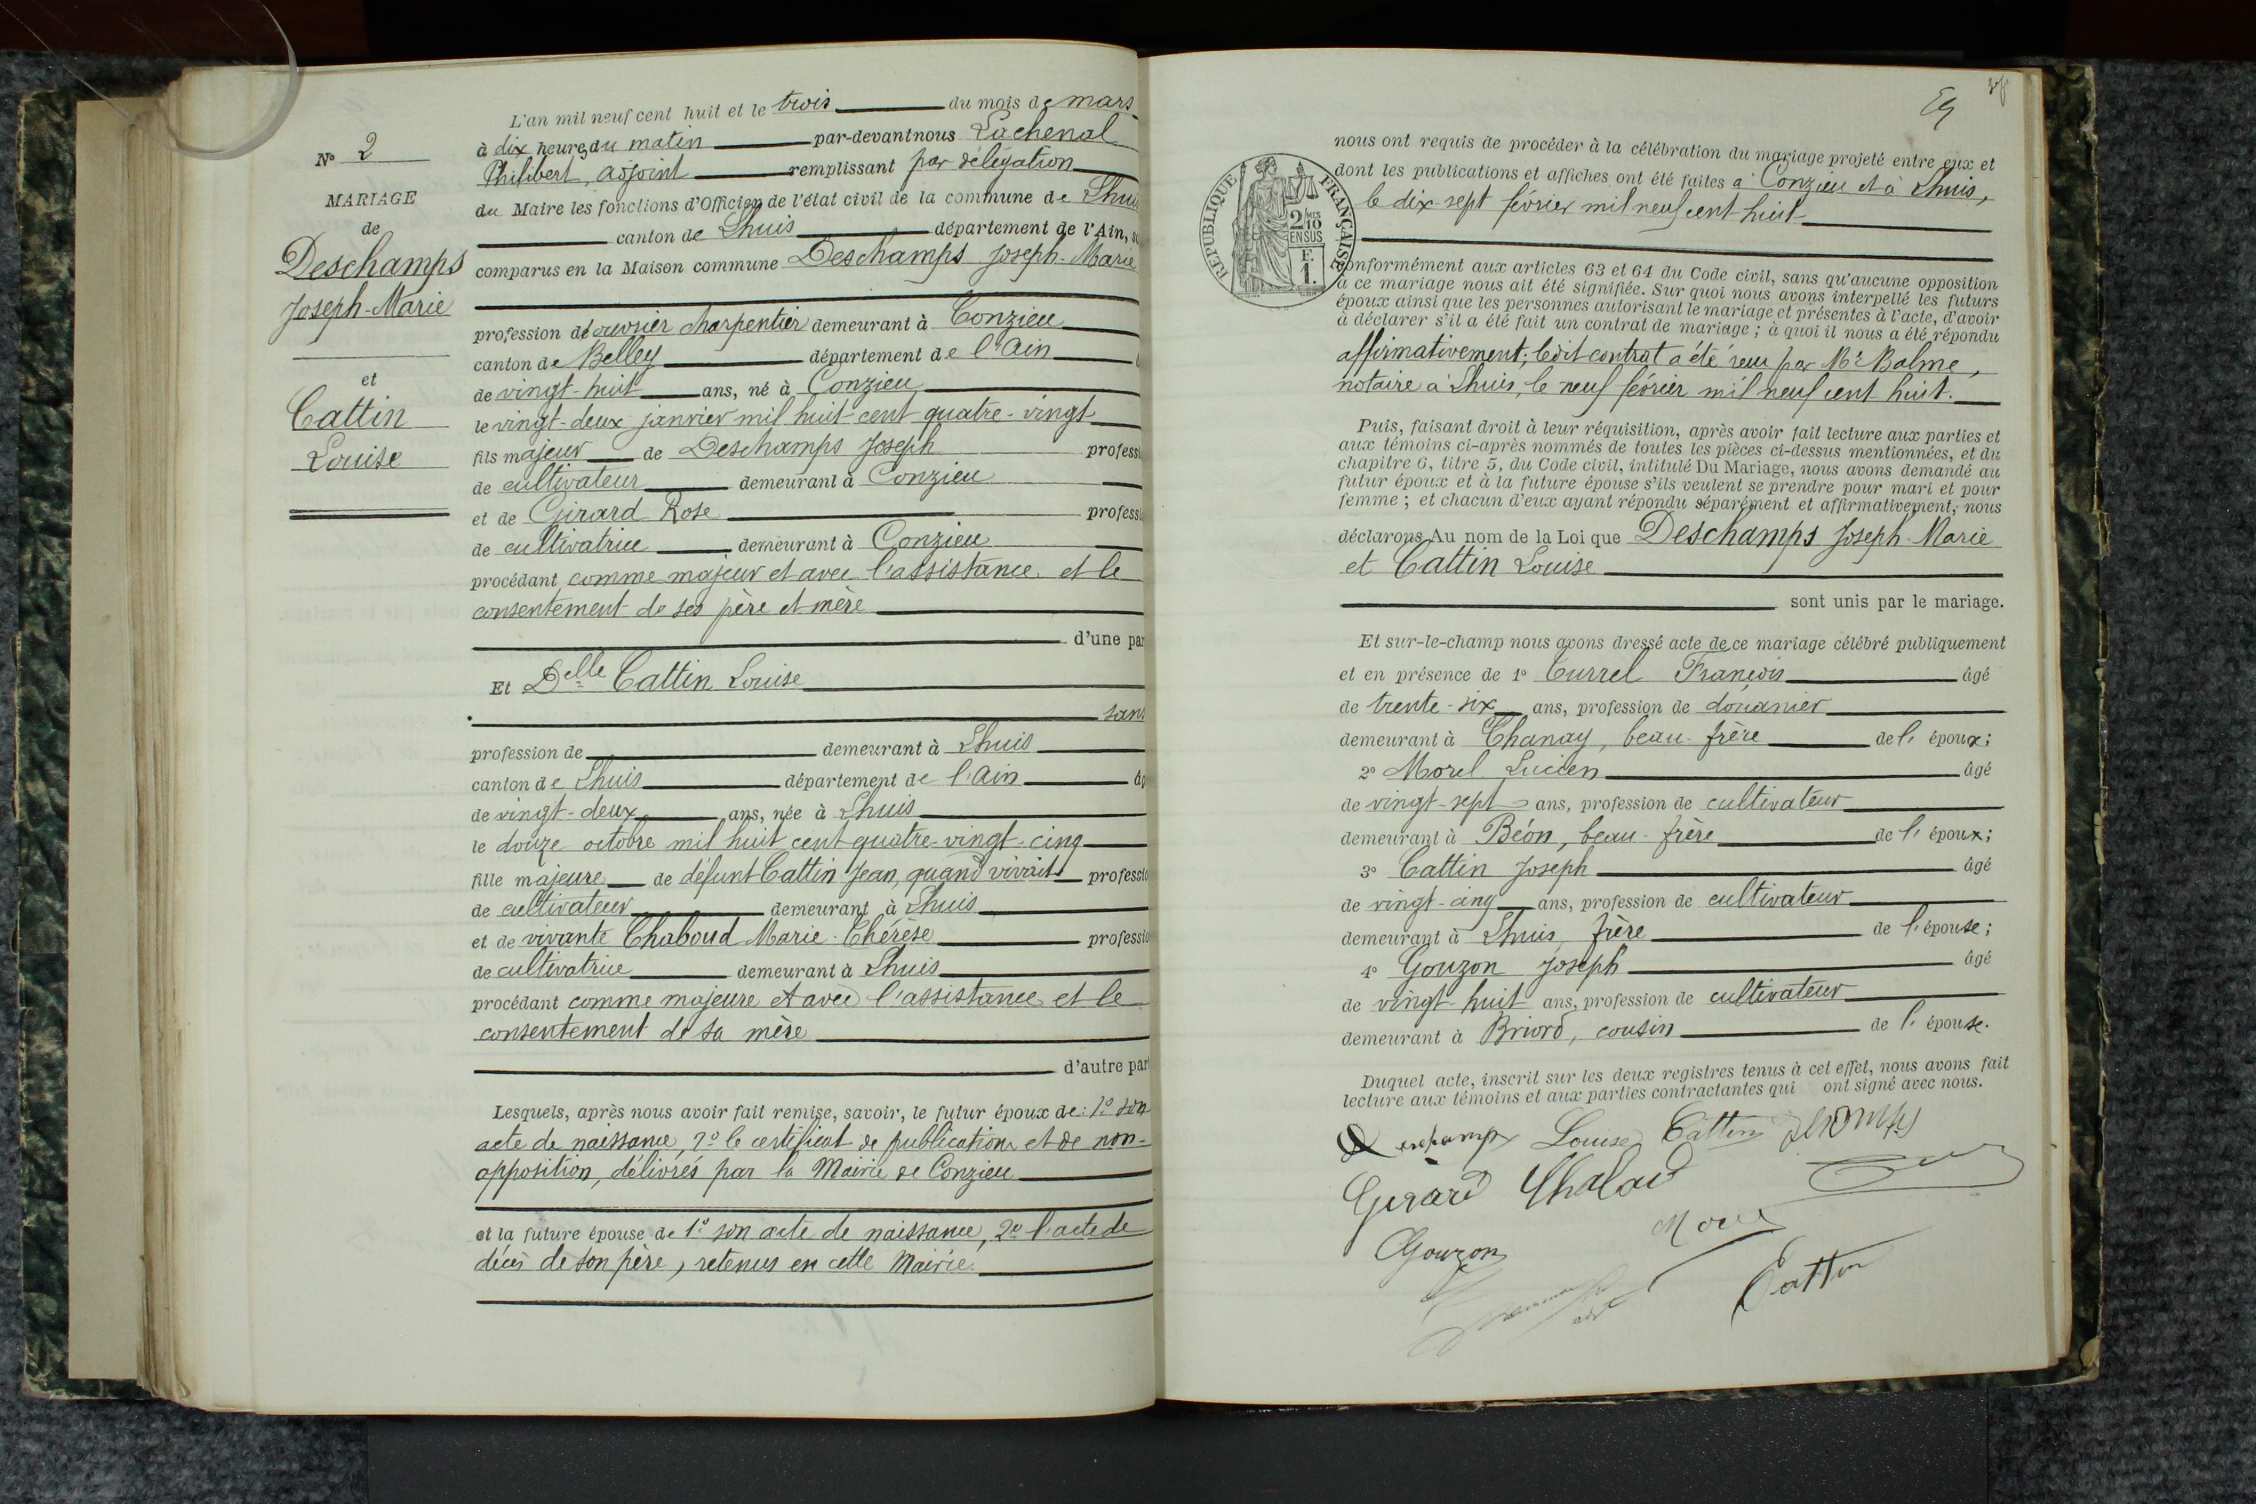 N° 2
MARIAGE
de
Deschamps
Joseph-Marie
et
Cattin
Louise
L'an mil neuf cent huit et le trois du mois de mars
à dix heures du matin par-devant nous Lachenal
Philibert, adjoint remplissant par délégation
du Maire les fonctions d'Officier de l'état civil de la commune de Lhuis
canton de Lhuis département de l'Ain,
comparus en la Maison commune Deschamps Joseph-Marie
profession d'ouvrier charpentier demeurant à Conzieu
canton de Belley département de l'Ain
de vingt-huit ans, né à Conzieu
le vingt-deux janvier mil huit cent quatre-vingt
fils majeur de Deschamps Joseph professi
de cultivateur demeurant à Conzieu
et de Girard Rose professi
de cultivatrice demeurant à Conzieu
procédant comme majeur et avec l'assistance et le
consentement de ses père et mère
d'une par
Et Delle Cattin Louise
sans
profession de demeurant à Lhuis
canton de Lhuis département de l'Ain âg
de vingt-deux ans, née à Lhuis
le douze octobre mil huit cent quatre-vingt-cinq
fille majeure de défunt Cattin Jean, quand vivait professio
de cultivateur demeurant à Lhuis
et de vivante Chaboud Marie-Thérèse professio
de cultivatrice demeurant à Lhuis
procédant comme majeure et avec l'assistance et le
consentement de sa mère
d'autre part
Lesquels, après nous avoir fait remise, savoir, le futur époux de: 1° son
acte de naissance, 2° le certificat de publications et de non-
opposition, délivrés par la Mairie de Conzieu
et la future épouse de 1° son acte de naissance, 2° l'acte de
décès de son père, retenus en cette Mairie.
RÉPUBLIQUE FRANÇAISE
2/10
EN SUS
F.
1.
nous ont requis de procéder à la célébration du mariage projeté entre eux et
dont les publications et affiches ont été faites à Conzieu et à Lhuis,
le dix-sept février mil neuf cent huit
conformément aux articles 63 et 64 du Code civil, sans qu'aucune opposition
à ce mariage nous ait été signifiée. Sur quoi nous avons interpellé les futurs
époux ainsi que les personnes autorisant le mariage et présentes à l'acte, d'avoir
à déclarer s'il a été fait un contrat de mariage; à quoi il nous a été répondu
affirmativement; ledit contrat a été reçu par Me Balme,
notaire à Lhuis, le neuf février mil neuf cent huit.
Puis, faisant droit à leur réquisition, après avoir fait lecture aux parties et
aux témoins ci-après nommés de toutes les pièces ci-dessus mentionnées, et du
chapitre 6, titre 5, du Code civil, intitulé Du Mariage, nous avons demandé au
futur époux et à la future épouse s'ils veulent se prendre pour mari et pour
femme; et chacun d'eux ayant répondu séparément et affirmativement, nous
déclarons Au nom de la Loi que Deschamps Joseph-Marie
et Cattin Louise
sont unis par le mariage.
Et sur-le-champ nous avons dressé acte de ce mariage célébré publiquement
et en présence de 1° Currel François âgé
de trente-six ans, profession de douanier
demeurant à Chanay, beau-frère de l' époux;
2° Morel Lucien âgé
de vingt-sept ans, profession de cultivateur
demeurant à Béon, beau-frère de l' époux;
3° Cattin Joseph âgé
de vingt-cinq ans, profession de cultivateur
demeurant à Lhuis, frère de l'épouse;
4° Gouzon Joseph âgé
de vingt-huit ans, profession de cultivateur
demeurant à Briord, cousin de l' épouse.
Duquel acte, inscrit sur les deux registres tenus à cet effet, nous avons fait
lecture aux témoins et aux parties contractantes qui ont signé avec nous.
Louise Cattin
Girard
Gouzon
Cattin